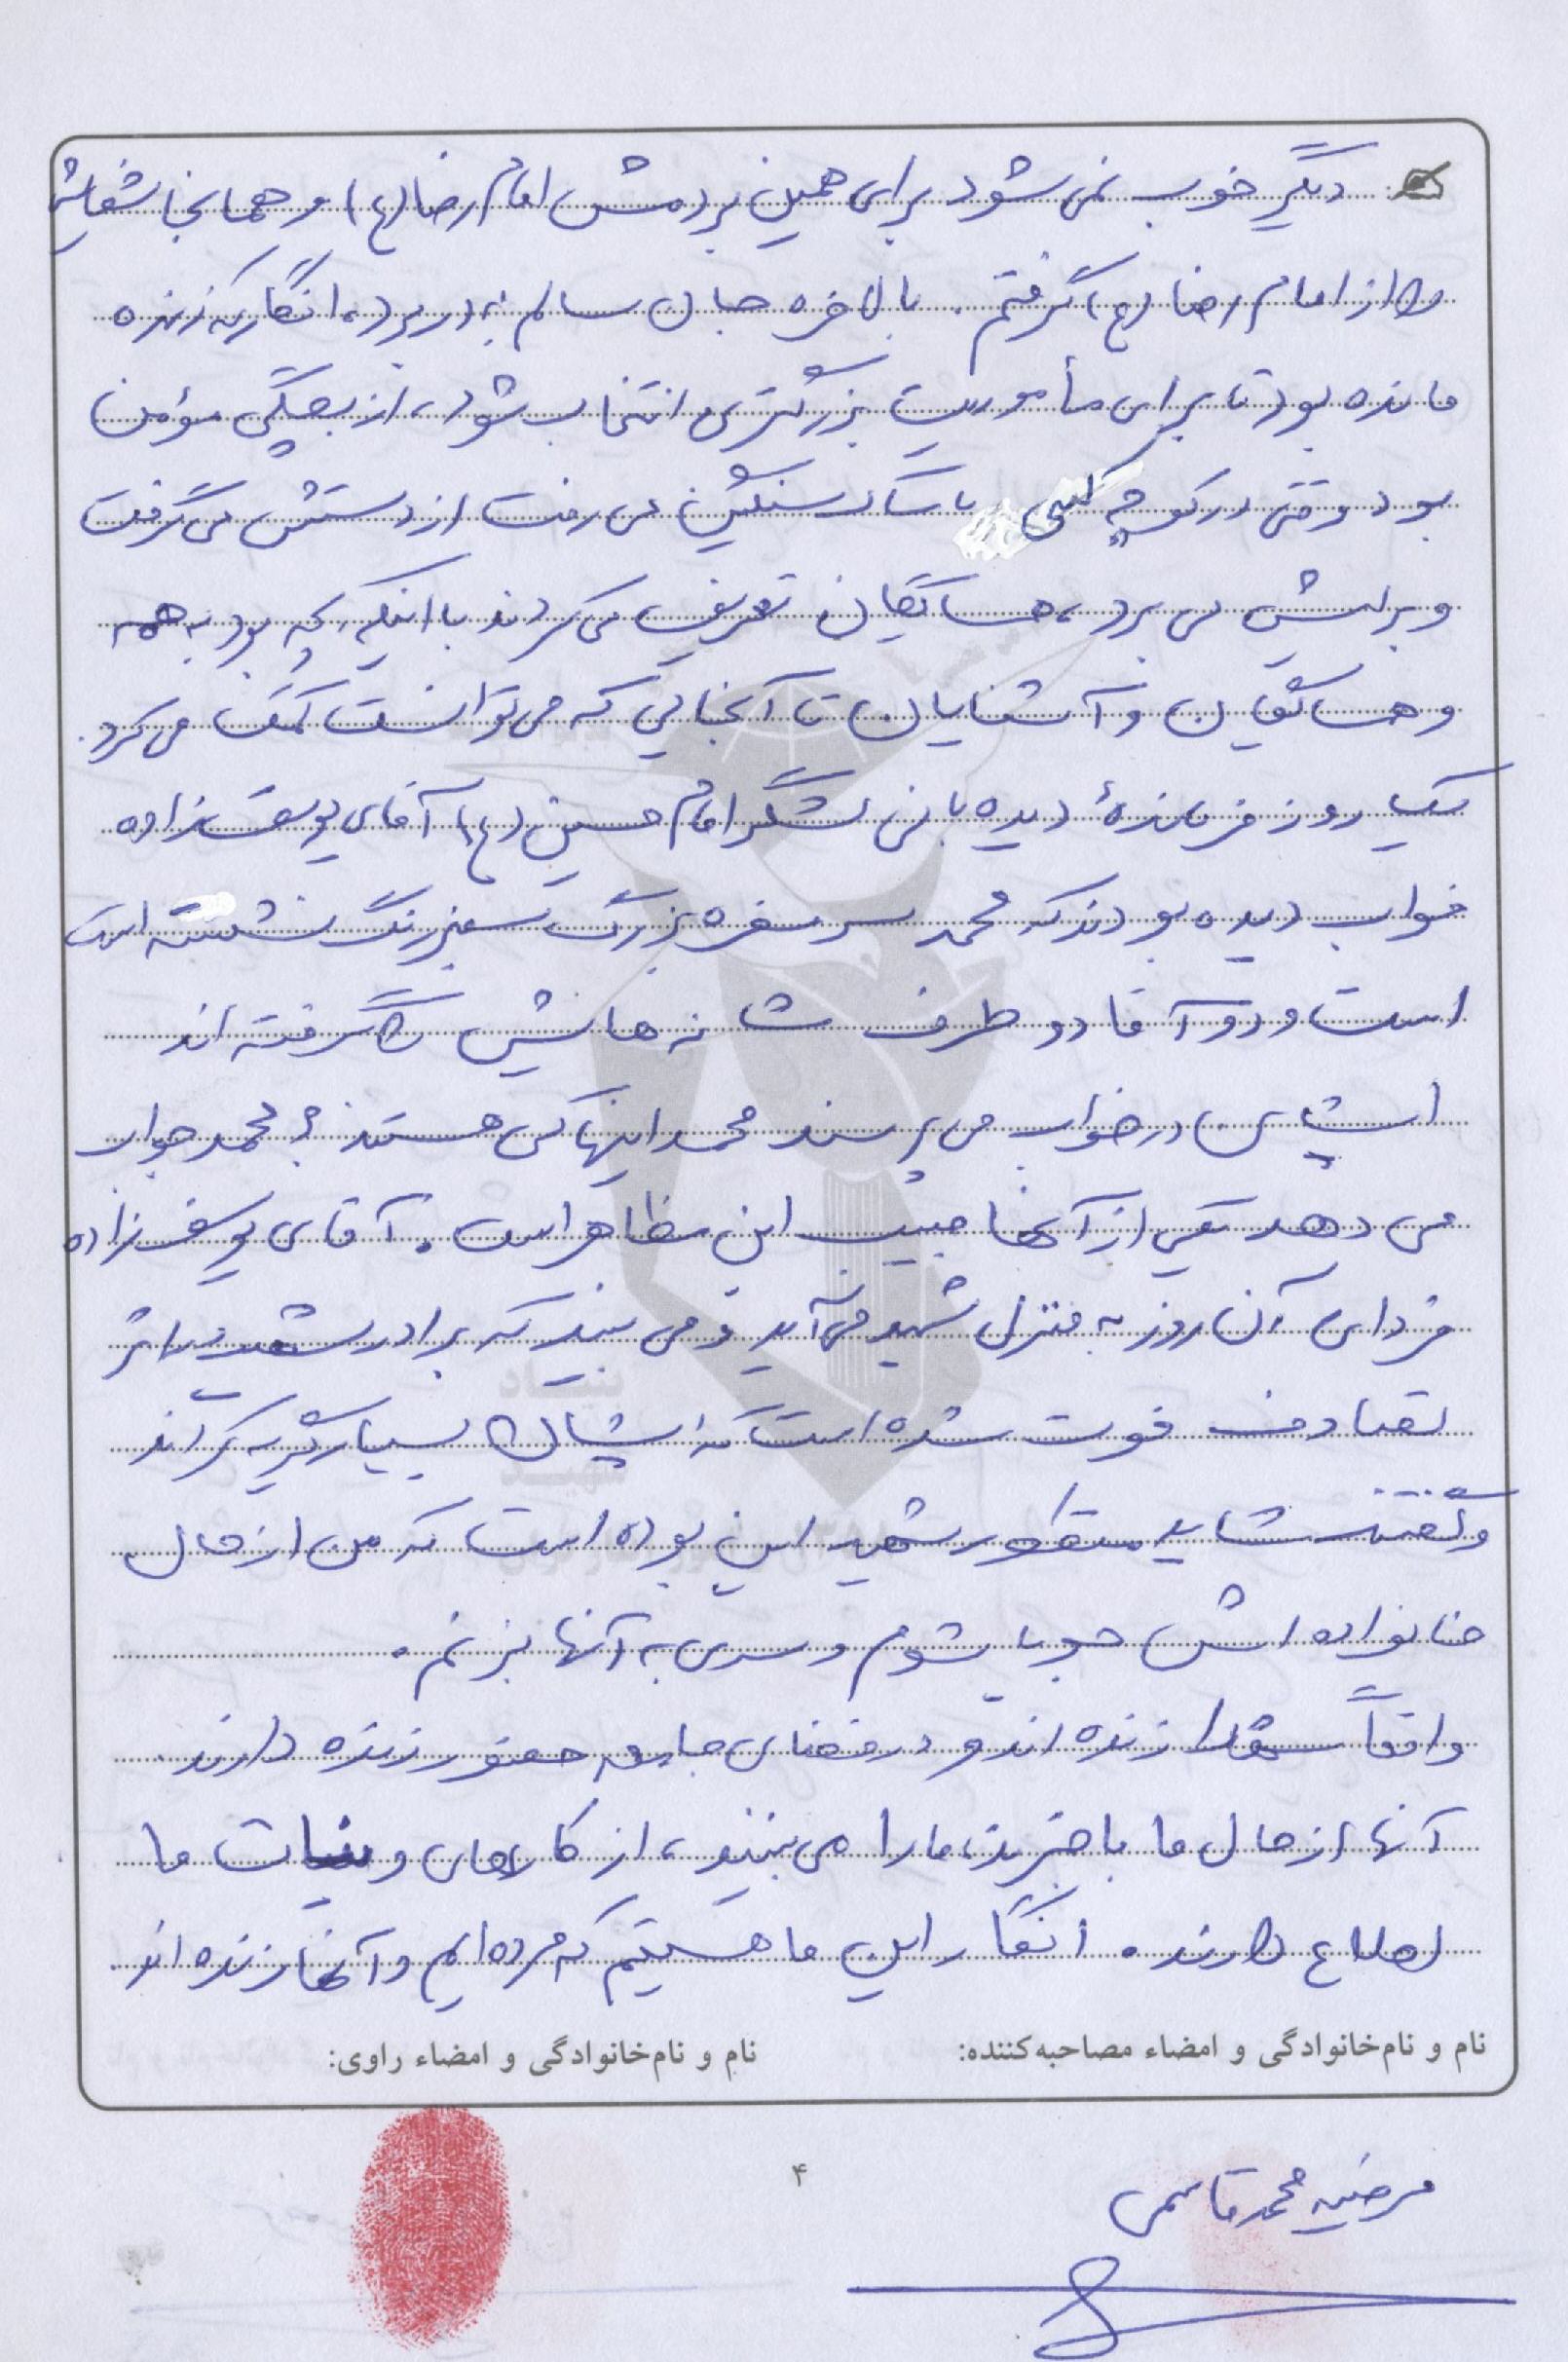 دیگر خوب نمی شود برای همین بردمش امام رضا (ع) و همانجا شفایش
را از امام رضا (ع) گرفتم. بالاخره جان سالم به در برد، انگار که زنده
مانده بود تا برای مأموریت بزرگتری انتخاب شود، از بچگی مؤمن
بود وقتی در کوچه کسی با ساک سنگین می رفت از دستش می گرفت
و برایش می برد، همسایگان تعریف می کردند با اینکه بچه بود به همه
و همسایگان و آشنایان تا آنجایی که می توانست کمک می کرد.
یک روز فرماندهٔ دیده بانی لشگر امام حسین (ع) آقای یوسف زاده
خواب دیده بودند که محمد سر سفره بزرگ سبز رنگ نشسته است
است و دو آقا دو طرف شانه هایش را گرفته اند
ایشان در خواب می پرسند محمد اینها کی هستند؟ محمد جواب
می دهد یکی از آنها حبیب ابن مظاهر است. آقای یوسف زاده
فردای آن روز به منزل شهید می آید و می بیند که برادر شهید در اثر
تصادف فوت شده است که ایشان بسیار گریه کردند
و گفتند شاید منظور شهید این بوده است که من از حال
خانواده اش جویا بشوم و سری به آنها بزنم.
واقعاً شهدا زنده اند و در فضای جامعه حضور زنده دارند.
آنها از حال ما با خبرند، ما را می بینند، از کارهای و نیات ما
اطلاع دارند. انگار این ما هستیم که مرده ایم و آنها زنده اند.
نام و نام‌خانوادگی و امضاء مصاحبه‌کننده: نام و نام‌خانوادگی و امضاء راوی:
۴
مرضیه محمدقاسمی